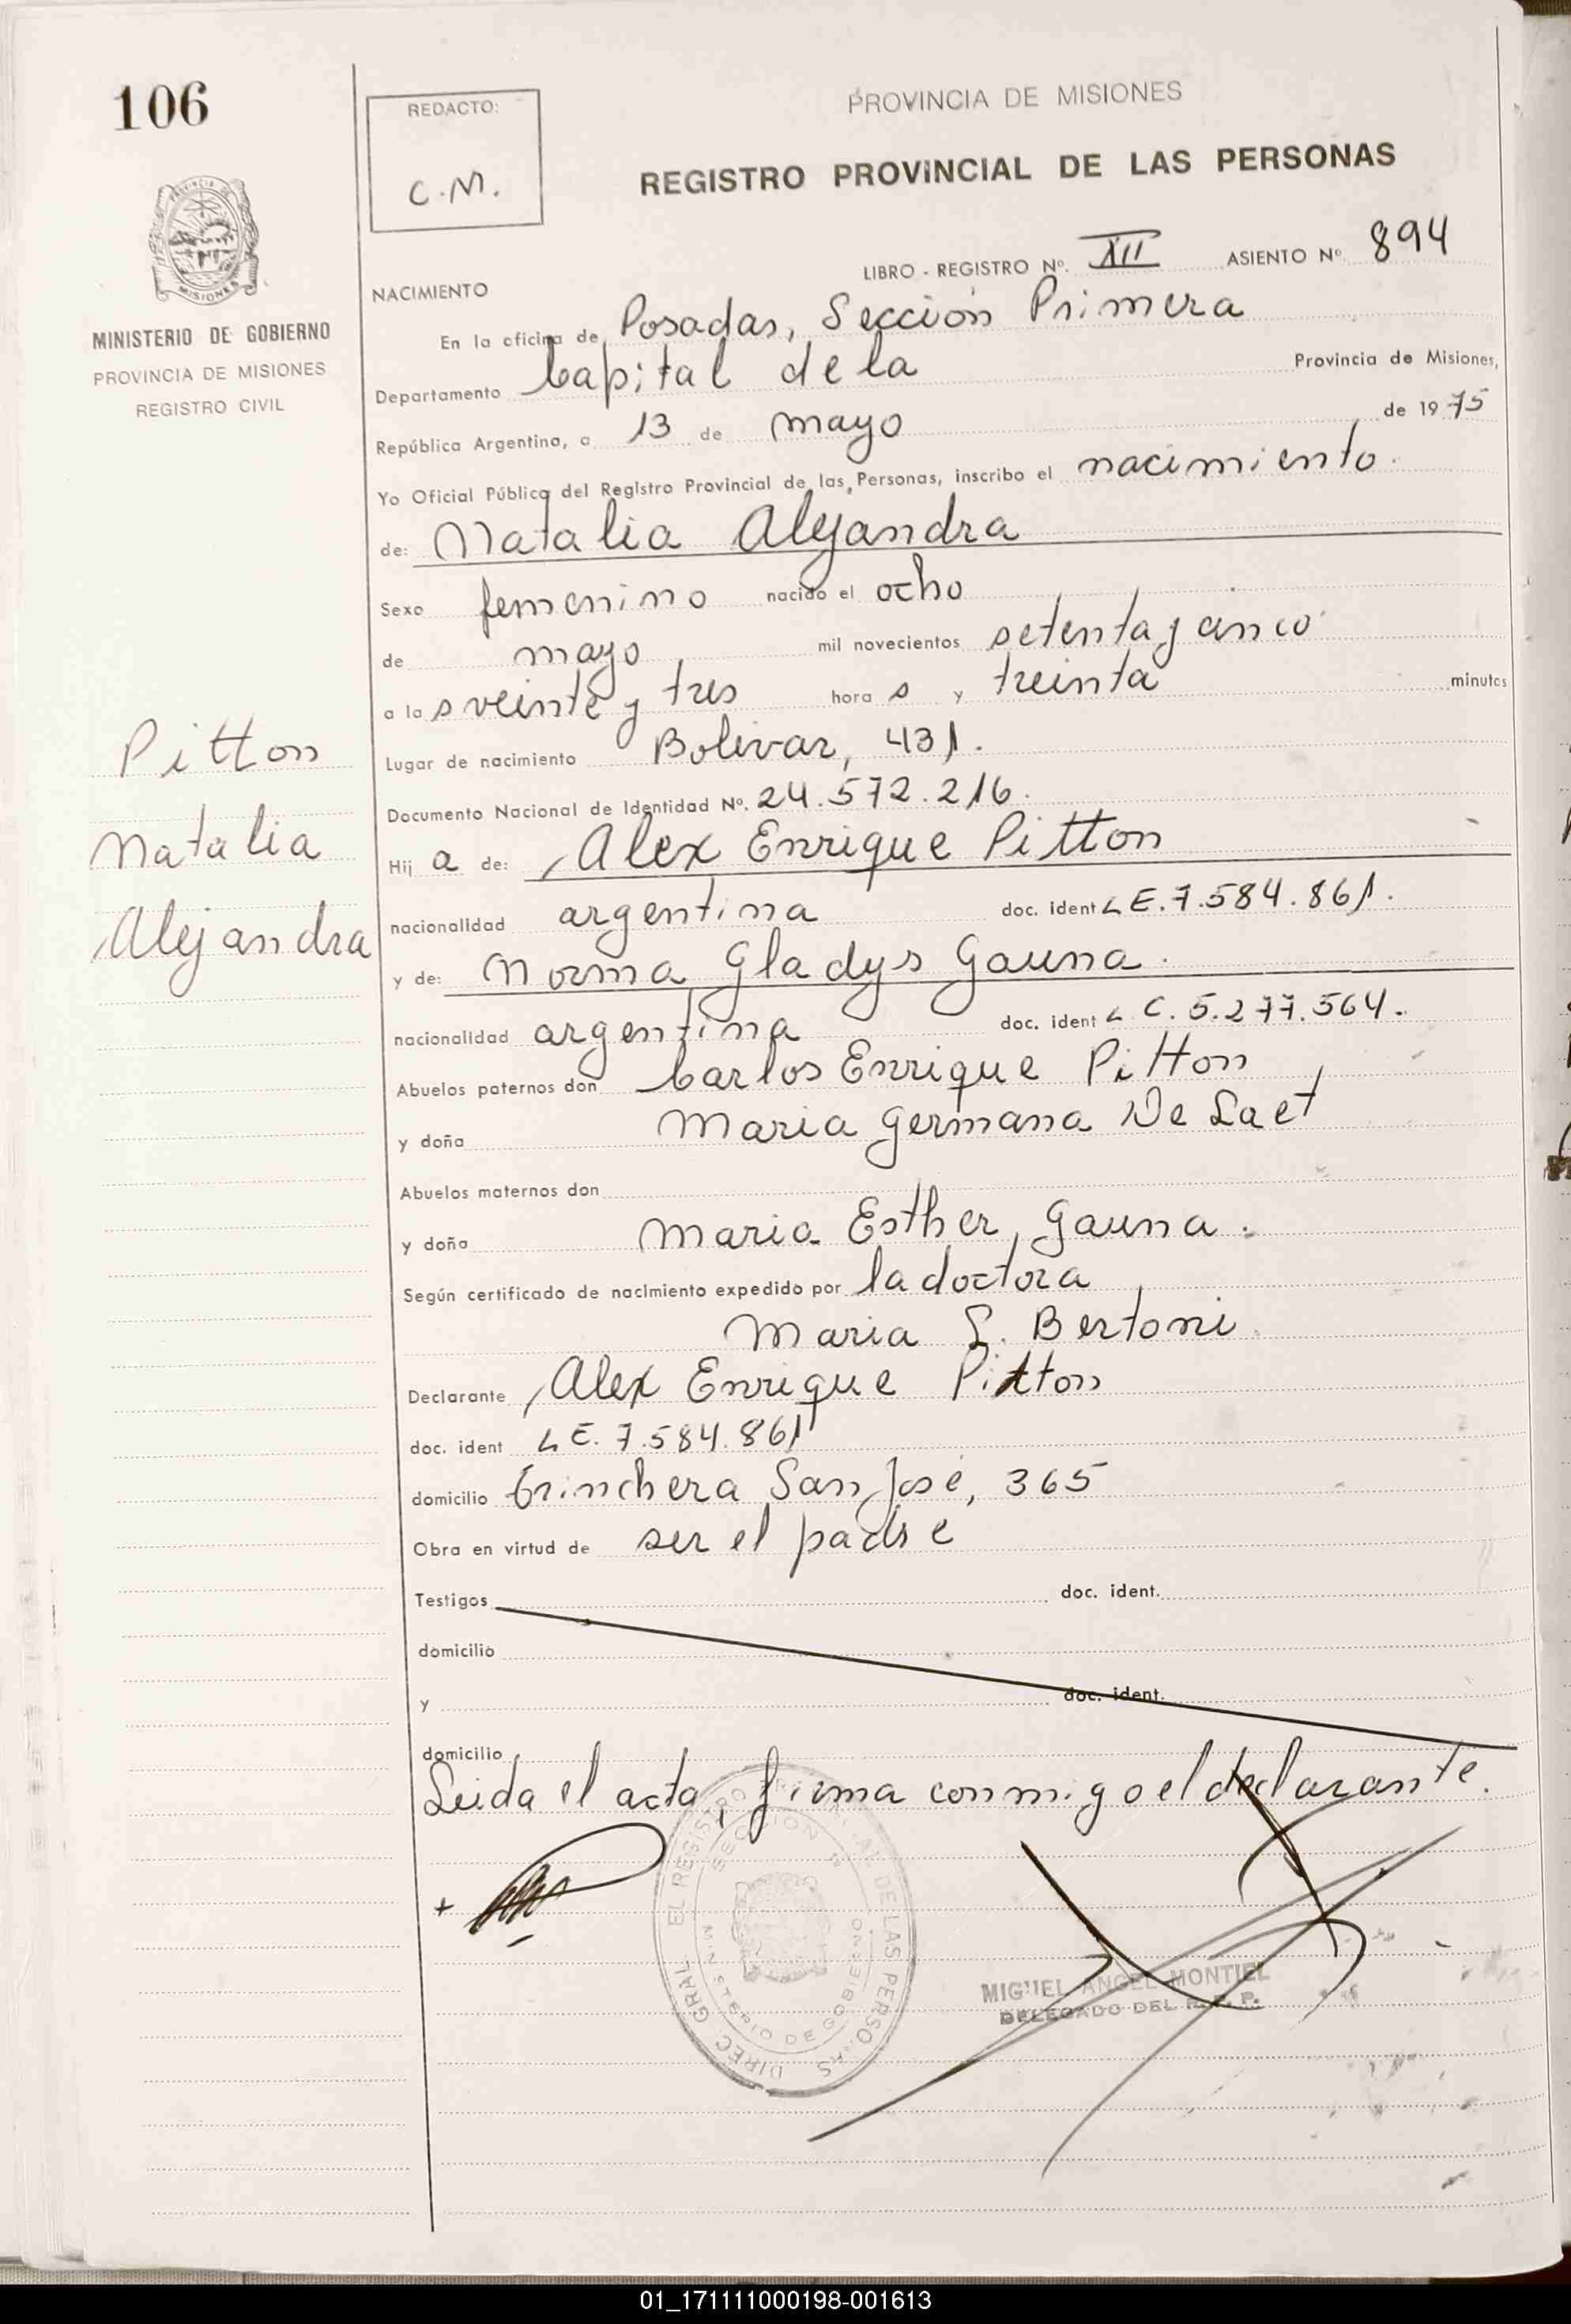 106
REDACTO:
C.M.
PROVINCIA DE MISIONES
REGISTRO PROVINCIAL DE LAS PERSONAS
LIBRO - REGISTRO Nº. XII ASIENTO Nº 894
PROVINCIA DE MISIONES
MINISTERIO DE GOBIERNO
PROVINCIA DE MISIONES
REGISTRO CIVIL
NACIMIENTO
En la oficina de Posadas, Sección Primera
Departamento Capital de la Provincia de Misiones,
República Argentina, a 13 de mayo de 1975
Yo Oficial Público del Registro Provincial de las Personas, inscribo el nacimiento.
de: Natalia Alejandra
Sexo femenino nacido el ocho
de mayo mil novecientos setenta y cinco
a las veinte y tres horas y treinta minutos
Lugar de nacimiento Bolivar, 431.
Documento Nacional de Identidad Nº. 24.572.216.
Pitton
Natalia
Alejandra
Hija de: Alex Enrique Pitton
nacionalidad argentina doc. ident L E. 7.584.861.
y de: Norma Gladys Gauna.
nacionalidad argentina doc. ident L C. 5.277.564.
Abuelos paternos don Carlos Enrique Pitton
y doña Maria Germana De Laet
Abuelos maternos don
y doña Maria Esther Gauna.
Según certificado de nacimiento expedido por la doctora
Maria L. Bertoni
Declarante Alex Enrique Pitton
doc. ident L E. 7.584.861
domicilio Trinchera San José, 365
Obra en virtud de ser el padre
Testigos doc. ident.
domicilio
y doc. ident.
domicilio
Leida el acta, firma conmigo el declarante.
DIREC. GRAL. EL REGISTRO DE LAS PERSONAS
SECCION 1ª
MINISTERIO DE GOBIERNO
MIGUEL ANGEL MONTIEL
DELEGADO DEL R. P. P.
01_171111000198-001613